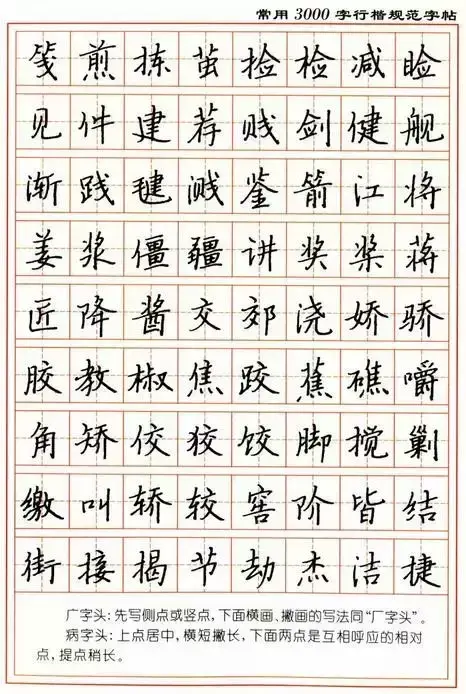 常用3000字行楷规范字帖
笺煎拣茧捡检减睑
见件建荐贱剑健舰
渐践毽溅鉴箭江将
姜浆僵疆讲奖桨蒋
匠降酱交郊浇娇骄
胶教椒焦跤蕉礁嚼
角矫佼狡饺脚搅剿
缴叫轿较窖阶皆结
街接揭节劫杰洁捷
广字头:先写侧点或竖点,下面横画、撇画的写法同“厂字头”。
病字头:上点居中,横短撇长,下面两点是互相呼应的相对
点,提点稍长。